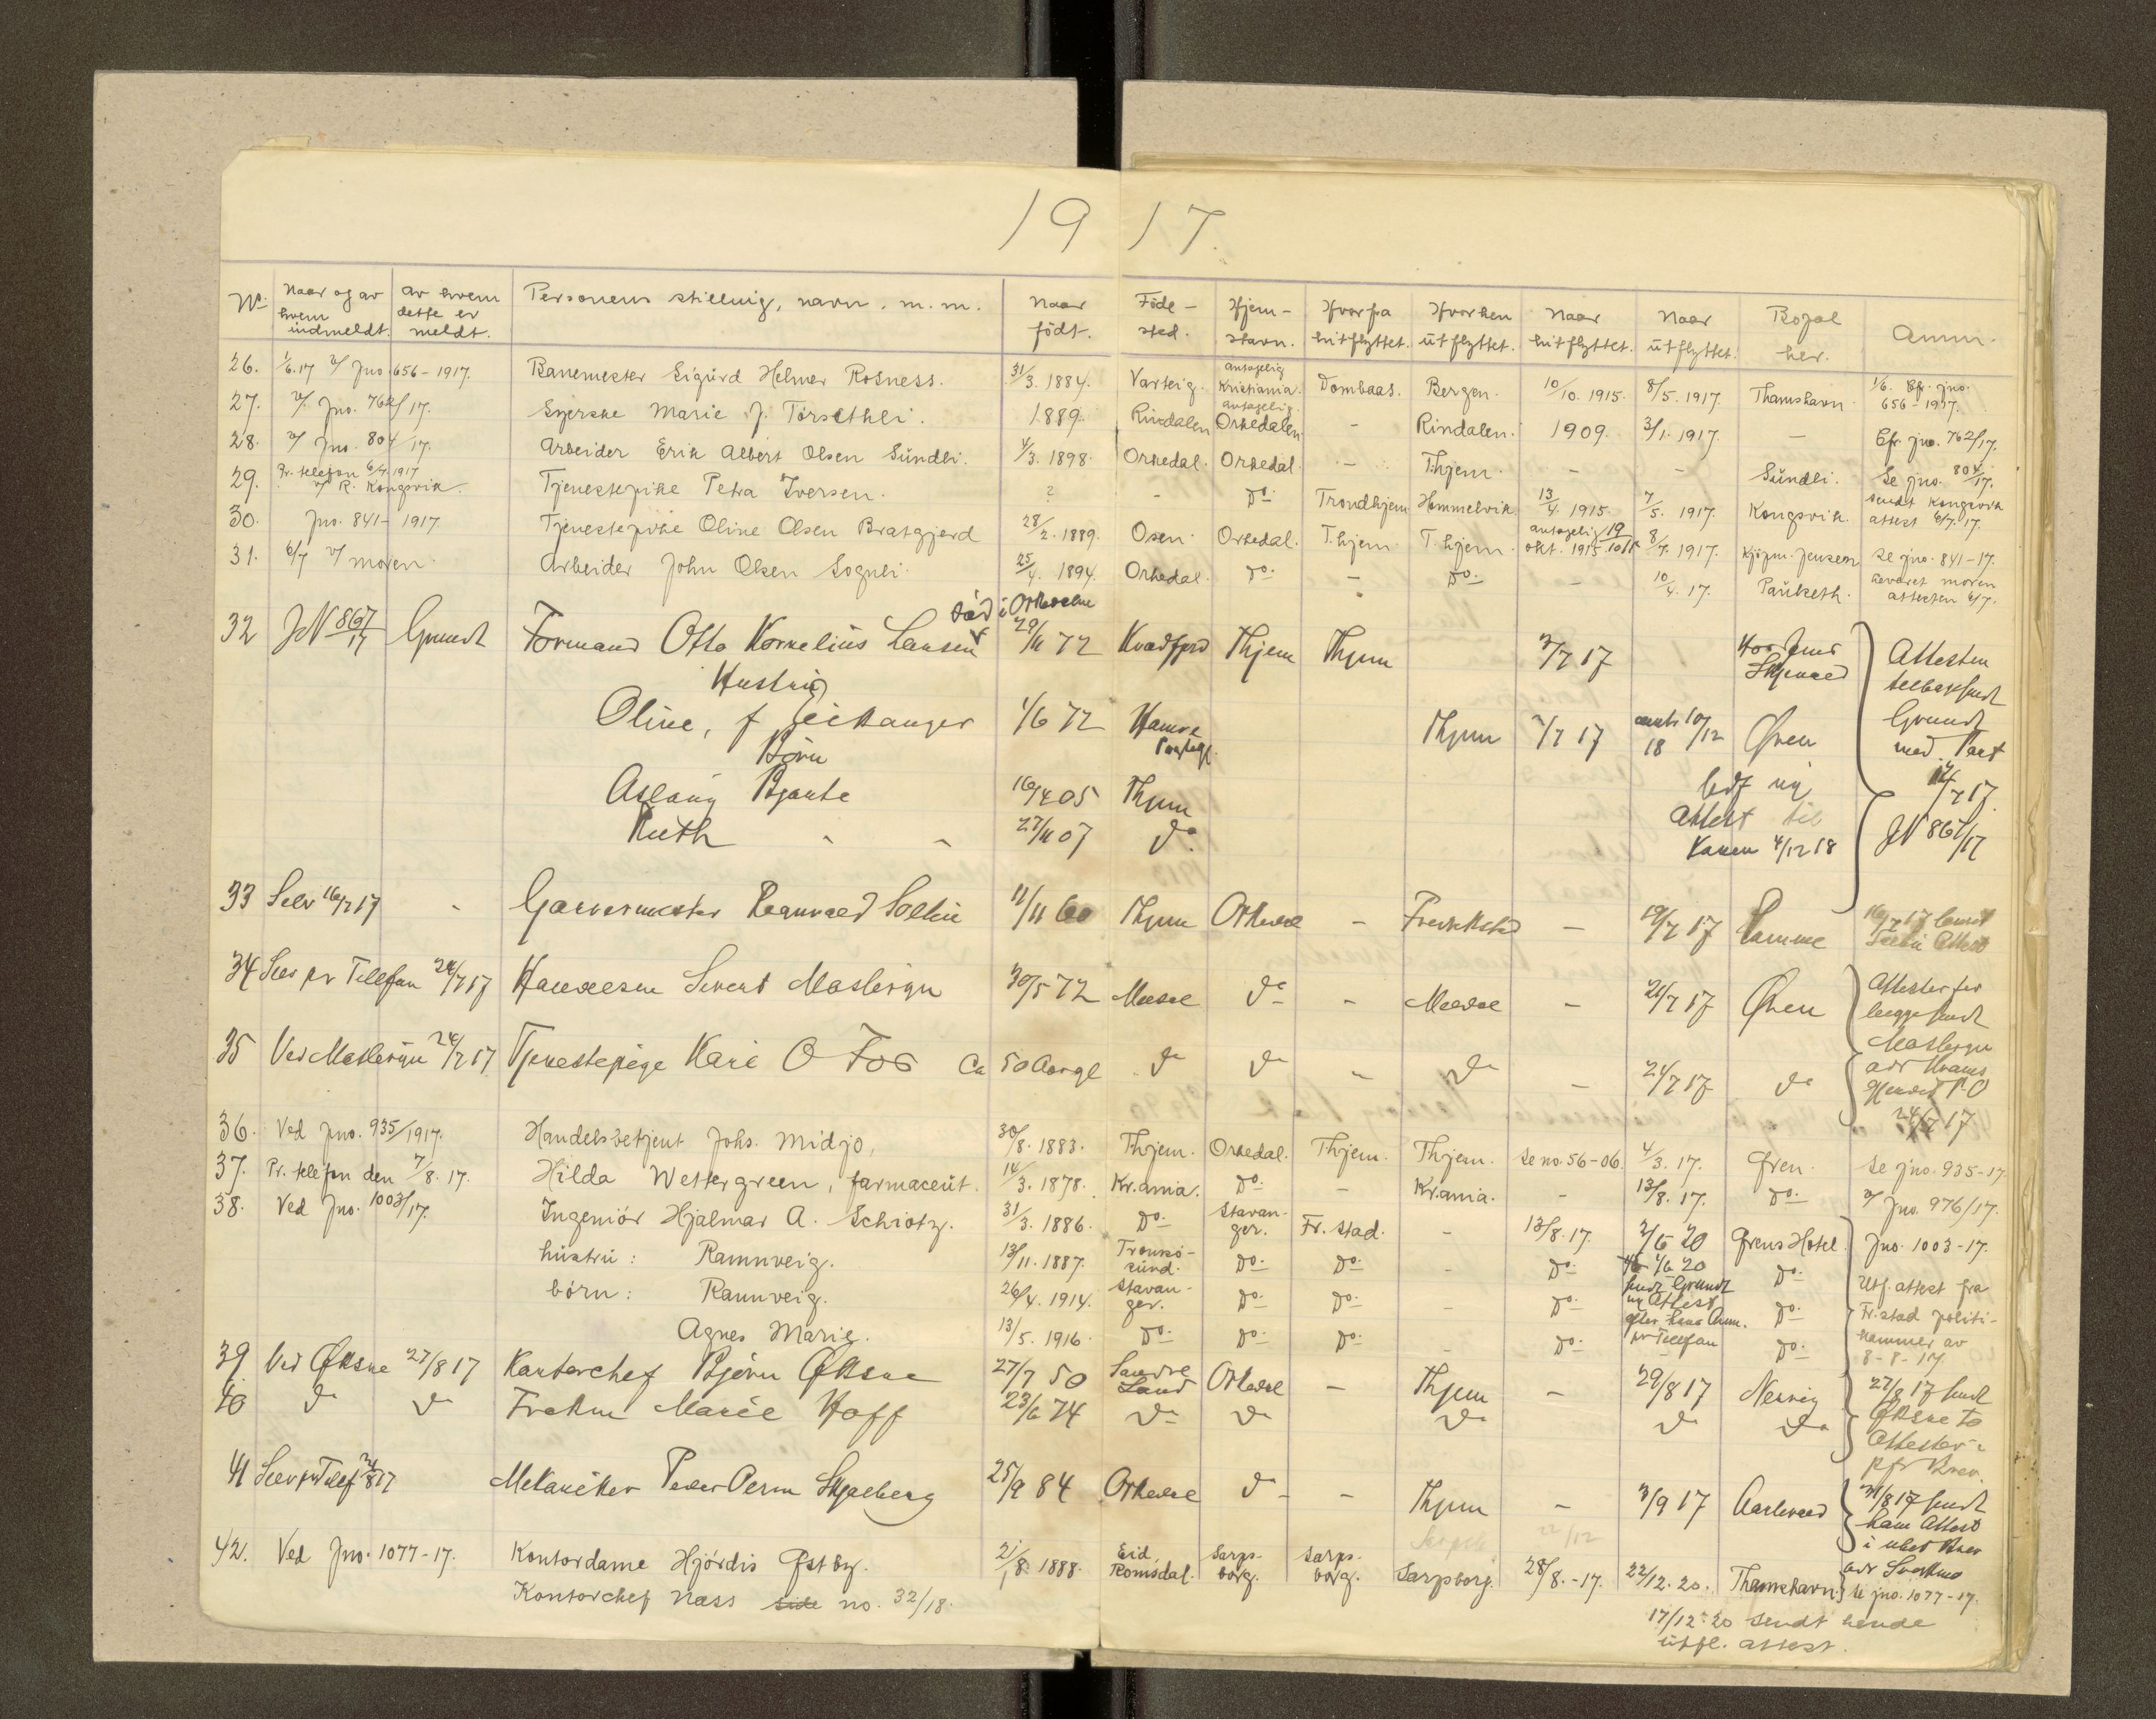 19 17.
No. Naar og av hvem indmeldt. av hvem dette er meldt. Personens stilling, navn. m.m. Naar födt. Föde-sted. Hjem-stavn. Hvorfra hitflyttet. Hvorhen ütflyttet. Naar hitflyttet. Naar ütflyttet. Bopæl her. Anm.
26. 1/6.17 v/ Jno. 656-1917. Banemester Sigürd Helmer Rosness. 31/3. 1884. Varteig. antagelig Kristiania. Dombaas. Bergen. 10/10. 1915. 8/5. 1917. Thamshavn. 1/6. Cfr. jno. 656-1917.
27. v/. Jno. 762/17. Syerske Marie J. Torsethli. 1889. Rindalen antagelig Orkedalen. - Rindalen. 1909. 3/1. 1917. - Cfr. jno. 762/17.
28. v/ Jno. 804/17. Arbeider Erik Albert Olsen Sündli. 4/3. 1898. Orkedal. Orkedal. - T.hjem. - - Sündli. Se jno. 804/17.
29. Pr. telefon 6/7.1917 v/ R. Kongsvik. Tjenestepike Petra Iversen. ? - Do. Trondhjem Hommelvik. 13/4. 1915. 7/5. 1917. Kongsvik. Sendt Kongsvik attest 6/7.17.
30. Jno. 841-1917. Tjenestepike Oline Olsen Bratgjerd 28/2. 1889. Osen. Orkedal. T.hjem. T.hjem. antagelig okt. 1915 8/7. 1917. Kjøpm. Jensen Se jno. 841-17.
31. 6/7 v/ moren. Arbeider John Olsen Sognli. 25/4. 1894. Orkedal. Do. - Do. - 10/4. 17. Paüketh. Leveret moren attesten 6/7.
32 JN 867/17 Grundt Formand Otto Kornelius Hansen död i Orkedalen 29/11 72 Kvadfjord Thjem Thjem 3/7 17 Hos Skjenald Attesten tilbakesendt Grundt med Part 14/7 17.
Hustru
Oline, f Eikanger 1/6 72 Hamre Thjem 3/7 17 10/12 18 Øren
Börn
Aslaug Bjarute 16/4 05 Thjem
Ruth " " 27/11 07 Do. Attest til Konen 4/12 18 JN 867/17
33 Selv 16/7 17 - Garvermester Ragnvald Sollie 11/11 60 Thjem Orkedal - Fredrikstad - 19/7 17 16/7 17 Attest
34 Selv pr Telefon 24/7 17 Sivert Maslergu 30/5 72 Meldal Do - Meldal - 21/7 17 Øren Attester for begge sendt
35 Ved 24/7 17 Tjenestepige Kari O Fos Ca 50 Aar gl Do Do - Do - 21/7 17 Do 24/7 17
36. Ved Jno. 935/1917. Handelsbetjent Johs. Midjo, 30/8. 1883. T.hjem. Orkedal. T.hjem. T.hjem. Se no. 56-06. 4/3. 17. Ören. Se jno. 935-17.
37. Pr. telefon den 7/8. 17. Hilda Wettergreen, farmaceüt. 14/3. 1878. Kr.ania. Do. - Kr.ania. - 13/8. 17. Do. v/ Jno. 976/17.
38. Ved Jno. 1003/17. Ingeniör Hjalmar A. Schiötz. 31/3. 1886. Do. Stavan-ger. Fr.stad. - 13/8. 17. 2/6 20 Ørens Hotel. Jno. 1003-17.
hüstrü: Rannveig. 13/11. 1887. Tromsö-sünd. Do. Do. - Do. 4/6 20 Do. Utf. attest fra
börn: Rannveig. 26/4. 1914. Stavan-ger. Do. Do. - Do. sendt Grundt ny Attest Do. Fr.stad politi-
Agnes Marie. 13/5. 1916. Do. Do. Do. - Do. efter hans Anm. pr Telefon Do. kammer av 8-8-17.
39 Ved Øksne 27/8 17 Kontorchef Björn Øksne 27/7 50 Søndre Land Orkedal - Thjem - 29/8 17 Nervig 27/8 17 sendt Øksne to Attester
40 Do Do Frøken Marie Hoff 23/6 74 Do Do Do Do Do pr Brev.
41 Selv pr Telef 31/8 17 Mekaniker Peder Skjelberg 25/9 84 Orkedal Do - Thjem - 3/9 17 31/8 17 sendt ham Attest
42. Ved Jno. 1077-17. Kontordame Hjördis Østby. 21/8. 1888. Eid, Romsdal. Sarps-borg. Sarps-borg. Sarpsborg. 28/8.-17. 22/12. 20. Thamshavn. Se jno. 1077-17.
Kontorchef Næss no. 32/18. 17/12-20 sendt hende ütfl. attest.